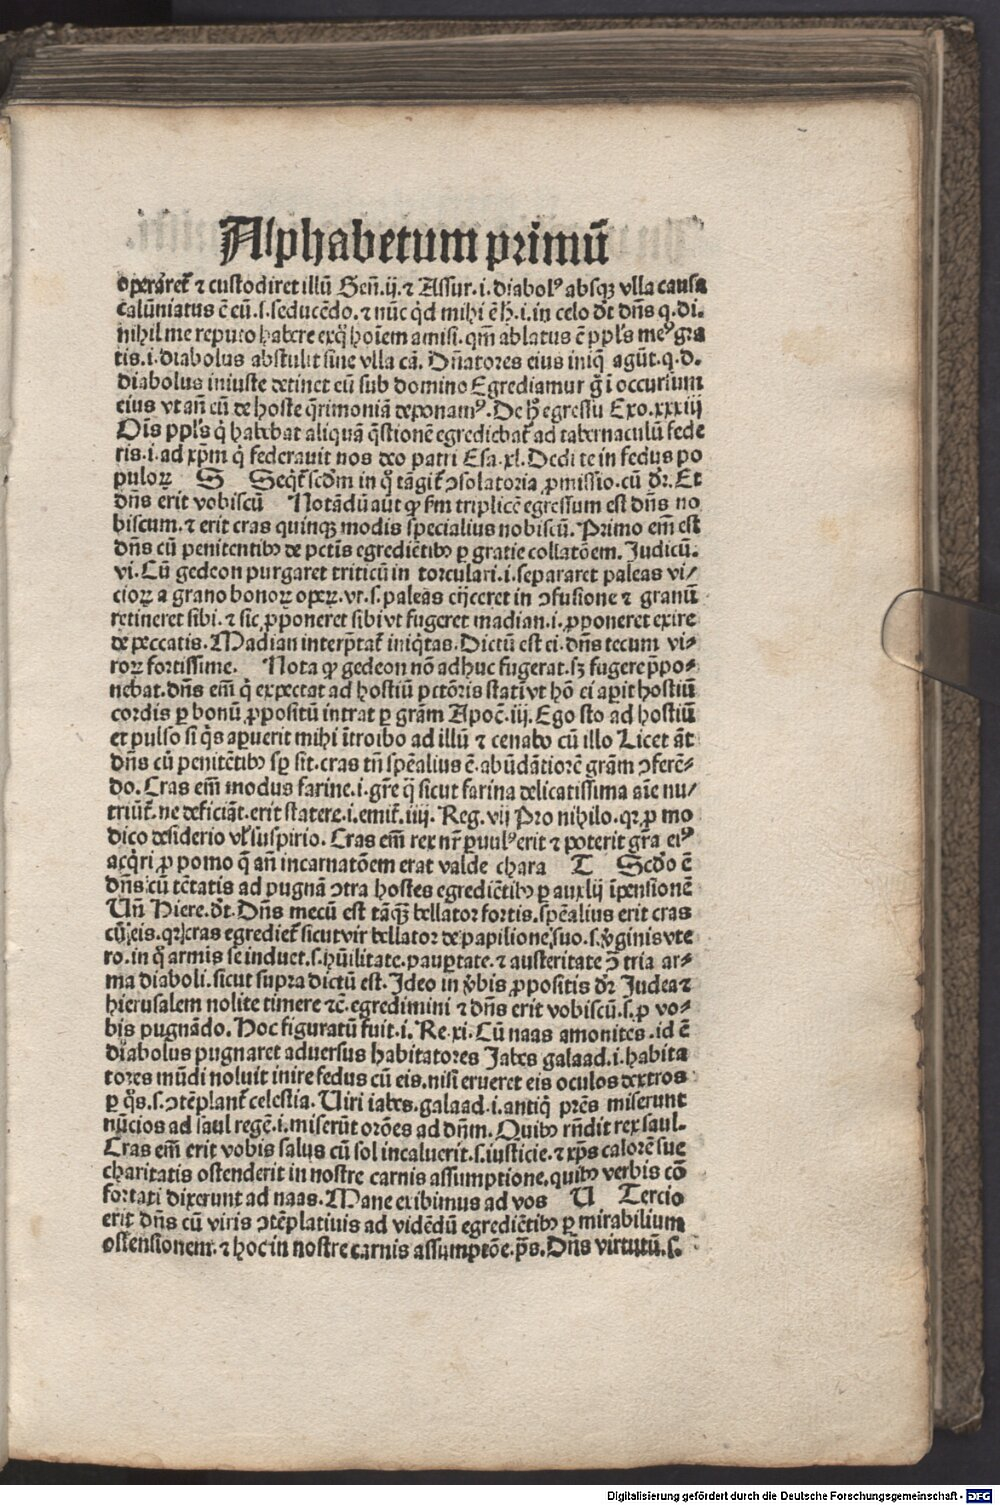 Alphabetum primū
operaret᷑ ⁊ custodiret illū Geñ.ij.⁊ Assur.i.diabolꝰ absqꝫ vlla causa
calūniatus ē eū.s.seducēdo.⁊ nūc qd mihi ē h̄.i.in celo dt̄ dn̄s q.di.
nihil me reputo habere exq̊ hoīem amisi.qm̄ ablatus ē ppl̄s meꝰ gra
tis.i.diabolus abstulit sine vlla cā. Dn̄atores eius iniq̄ agūt.q.d.
diabolus iniuste detinet eū sub domino Egrediamur g̊ i occursum
eius vt añ eū de hoste q̄rimoniā deponamꝰ. De hꝰ egressu Exo.xxxiij
Oīs ppl̄s q̇ habebat aliquā q̄stionē egrediebat᷑ ad tabernaculū fede
ris.i.ad xp̄m q̇ federauit nos deo patri Esa.xl. Dedi te in fedus po
puloꝝ S Seqt᷑ scd̄m in q̊ tāgit᷑ ꝯsolatoria ꝓmissio.cū dr̄. Et
dn̄s erit vobiscū Notādū aūt ꝙ sm̄ triplicē egressum est dn̄s no
biscum.⁊ erit cras quinqꝫ modis specialius nobiscū. Primo em̄ est
dn̄s cū penitentibꝰ de pctīs egrediētibꝰ ꝑ gratie collatōem. Judicū.
vi. Cū gedeon purgaret triticū in torculari.i.separaret paleas vi/
cioꝝ a grano bonoꝝ opeꝝ.vt.s.paleas eijceret in ꝯfusione ⁊ granū
retineret sibi.⁊ sic ꝓponeret sibi vt fugeret madian.i.ꝓponeret exire
de peccatis. Madian interp̄tat᷑ iniq̇tas. Dictū est ei.dn̄s tecum vi-
roꝝ fortissime. Nota ꝙ gedeon nō adhuc fugerat.sꝫ fugere p̄po-
nebat.dn̄s em̄ q̇ expectat ad hostiū pctōris stati vt hō ei aꝑit hostiū
cordis ꝑ bonū ꝓpositū intrat ꝑ grām Apoc̄.iij. Ego sto ad hostiū
et pulso si q̇s aꝑuerit mihi ītroibo ad illū ⁊ cenabo cū illo Licet āt
dn̄s cū penitētibꝰ sꝑ sit.cras tn̄ spēalius ē.abūdātiorē grām ꝯferē-
do. Cras em̄ modus farine.i.gr̄e q̄ sicut farina delicatissima aīe nu/
triūt᷑.ne deficiāt.erit statere.i.emit᷑.iiij. Reg. vij Pro nihilo.qꝛ ꝓ mo
dico desiderio vl̓ suspirio. Cras em̄ rex nr̄ ꝑuulꝰ erit ⁊ poterit gr̄a eiꝰ
acq̇ri ꝓ pomo q̄ añ incarnatōem erat valde chara T Scd̓o ē
dn̄s cū tētatis ad pugnā ꝯtra hostes egrediētibꝰ ꝑ auxlij īpensionē
Uñ Hiere.dt̄. Dn̄s mecū est tāqꝫ bellator fortis.spēalius erit cras
cū eis.qꝛ cras egrediet᷑ sicut vir bellator de papilione suo.s.v̓ginis vte
ro.in q̊ armis se induet.s.hūilitate.pauꝑtate.⁊ austeritate ꝯ̄ tria ar-
ma diaboli.sicut supra dictū est. Ideo in v̓bis ꝓpositis dr̄ Judea ⁊
hierusalem nolite timere ⁊c̄.egredimini ⁊ dn̄s erit vobiscū.s.ꝓ vo-
bis pugnādo. Hoc figuratū fuit.i. Re.xi. Cū naas amonites.id ē
diabolus pugnaret aduersus habitatores Jabes galaad.i.habita
tores mūdi noluit inire fedus cū eis.nisi erueret eis oculos dextros
ꝑ q̊s.s.ꝯtēplant᷑ celestia. Uiri iabes.galaad.i.antiq̇ prēs miserunt
nūcios ad saul regē.i.miserūt orōes ad dn̄m. Quibꝰ rn̄dit rex saul.
Cras em̄ erit vobis salus cū sol incaluerit.s.iusticie.⁊ xp̄s calorē sue
charitatis ostenderit in nostre carnis assumptione.quibꝰ verbis cō
fortati dixerunt ad naas. Mane exibimus ad vos U Tercio
erit dn̄s cū viris ꝯtēplatiuis ad vidēdū egrediētibꝰ ꝑ mirabilium
ostensionem.⁊ hoc in nostre carnis assumptōe.p̄s. Dn̄s virtutū.s.
Digitalisierung gefördert durch die Deutsche Forschungsgemeinschaft - DFG